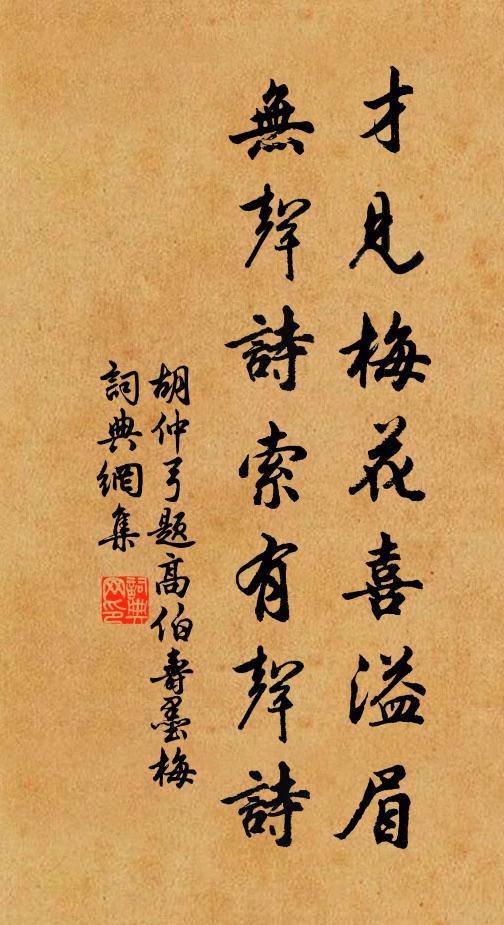 才見梅花喜溢眉
無聲詩索有聲詩
胡仲弓題高伯壽墨梅
詞典網集
詞典網印